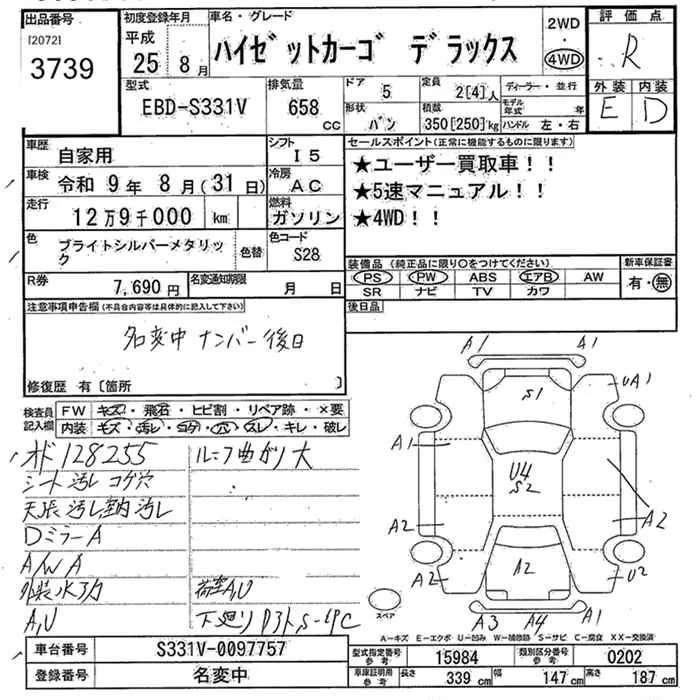 出品番号
[2072]
3739
初度登録年月
平成
25 8月
車名・グレード
ハイゼットカーゴ デラックス
2WD
・
4WD
評価点
R
外装 内装
E D
型式
EBD-S331V
排気量
658 cc
ドア
5
定員
2[4]人
形状
バン
積載
350[250]kg
ディーラー・並行
モデル年式 年
ハンドル 左・右
車歴
自家用
シフト
I5
車検 令和 9年 8月(31日)
冷房
AC
走行
12万9千000 km
燃料
ガソリン
色
ブライトシルバーメタリック
色替
色コード
S28
R券
7,690円
名変通知期限
月 日
セールスポイント(正常に機能するものに限ります)
★ユーザー買取車!!
★5速マニュアル!!
★4WD!!
装備品(純正品に限り○をつけてください)
PS PW ABS エアB AW
SR ナビ TV カワ
新車保証書
有・無
後日品
注意事項申告欄(不具合内容等は具体的に記入して下さい)
名変中 ナンバー後日
修復歴 有〔箇所 〕
検査員記入欄
FW キズ・飛石・ヒビ割・リペア跡・×要
内装 キズ・汚レ・コゲ・穴・スレ・キレ・破レ
オド128255
ルーフ曲がり大
シート汚レ コゲ穴
天張汚レ 室内汚レ
Dミラー A
A/W A
荷室A,U
A,U
A1 A1
S1
UA1
A1
U4
S2
A2
A2
A2
A2
U2
A3 A4 A1
スペア
A-キズ E-エクボ U-凹み W-補修跡 S-サビ C-腐食 XX-交換済
車台番号
S331V-0097757
登録番号
名変中
型式指定番号
参考
15984
類別区分番号
参考
0202
車庫証明用
参考
長さ 339 cm
幅 147 cm
高さ 187 cm